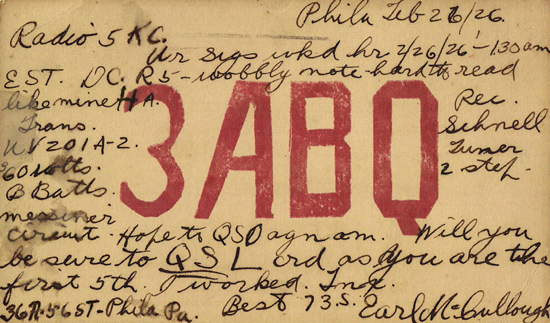 Phila Feb 26/26.
Radio 5 KC.
Ur sigs wkd hr 2/26/26 - 1.30 am
EST. DC. R5 - wobbly note - hard to read
like mine HA.
Rec.
Trans.
Schnell
UV 201A-2.
Tuner
60 Volts.
2 step.
B Batts.
3ABQ
circuit. Hope to QSO agn am. Will you
be sure to QSL crd as you are the
first 5th. I worked.
Best 73s. Earl McCullough
56 ST. Phila Pa.